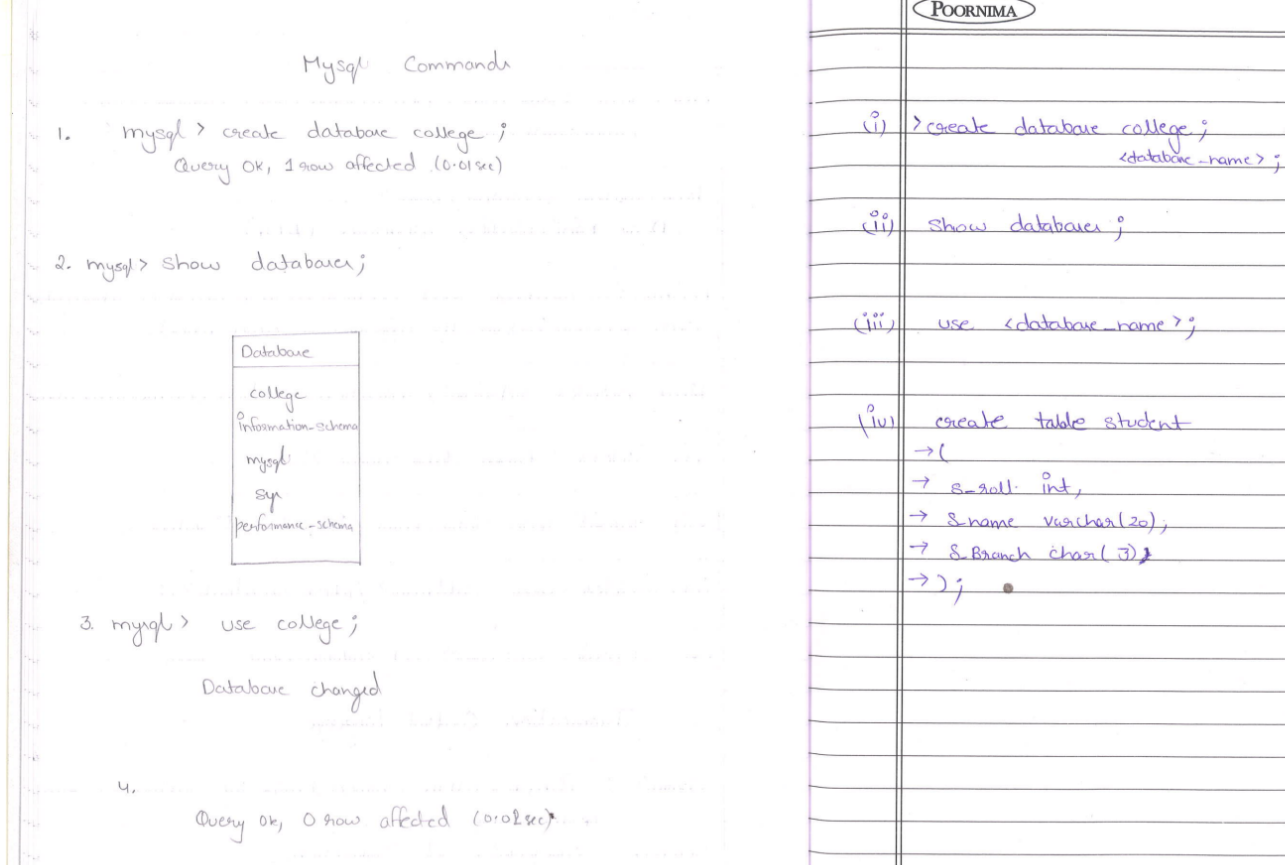 Mysql Commands
1. mysql > create database college ;
Query OK, 1 row affected (0.01 sec)
2. mysql > show databases;
Database
college
information-schema
mysql
sys
performance-schema
3. mysql > use college ;
Database changed
4.
Query OK, 0 row affected (0.02 sec)
POORNIMA
(i) > create database college ;
<database_name> ;
(ii) show databases ;
(iii) use <database_name> ;
(iv) create table student
→ (
→ s_roll int,
→ s_name varchar(20),
→ s_Branch char(3)
→ );